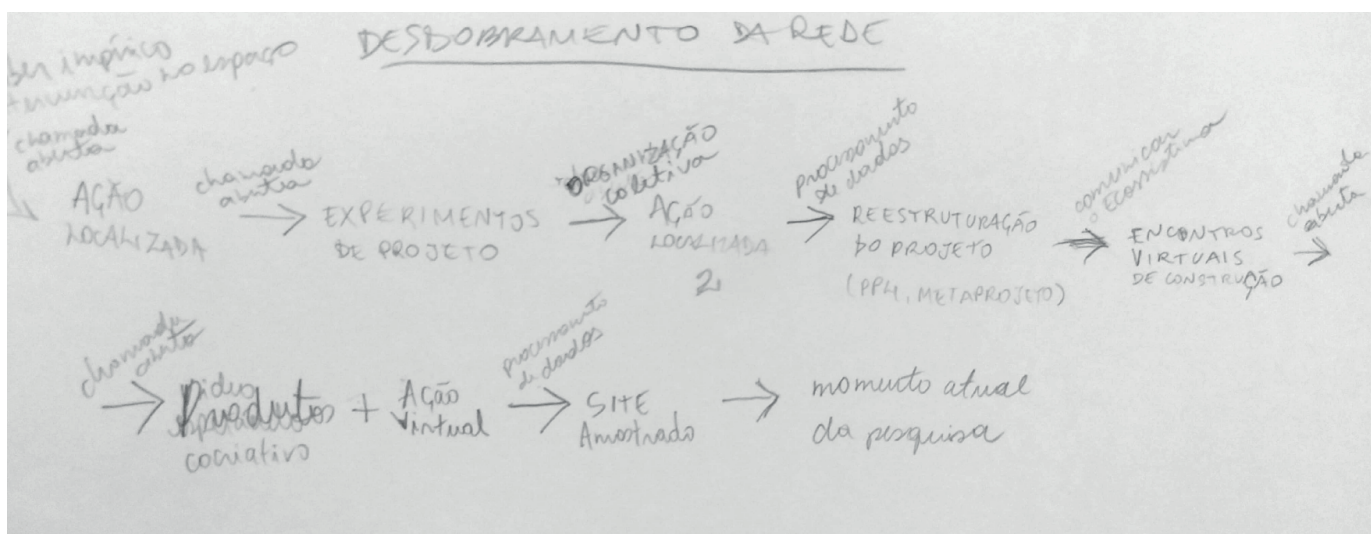 DESDOBRAMENTO DA REDE
no espaço
chamada
aberta
AÇÃO
LOCALIZADA
chamada
aberta
EXPERIMENTOS
DE PROJETO
ORGANIZAÇÃO
coletiva
AÇÃO
LOCALIZADA
2
processamento
de dados
REESTRUTURAÇÃO
DO PROJETO
(PPH, METAPROJETO)
comunicar
o ECOssistema
ENCONTROS
VIRTUAIS
DE CONSTRUÇÃO
chamada
aberta
chamada
aberta
Produtos +
cocriativo
Ação
Virtual
processamento
de dados
SITE
Amostrado
momento atual
da pesquisa